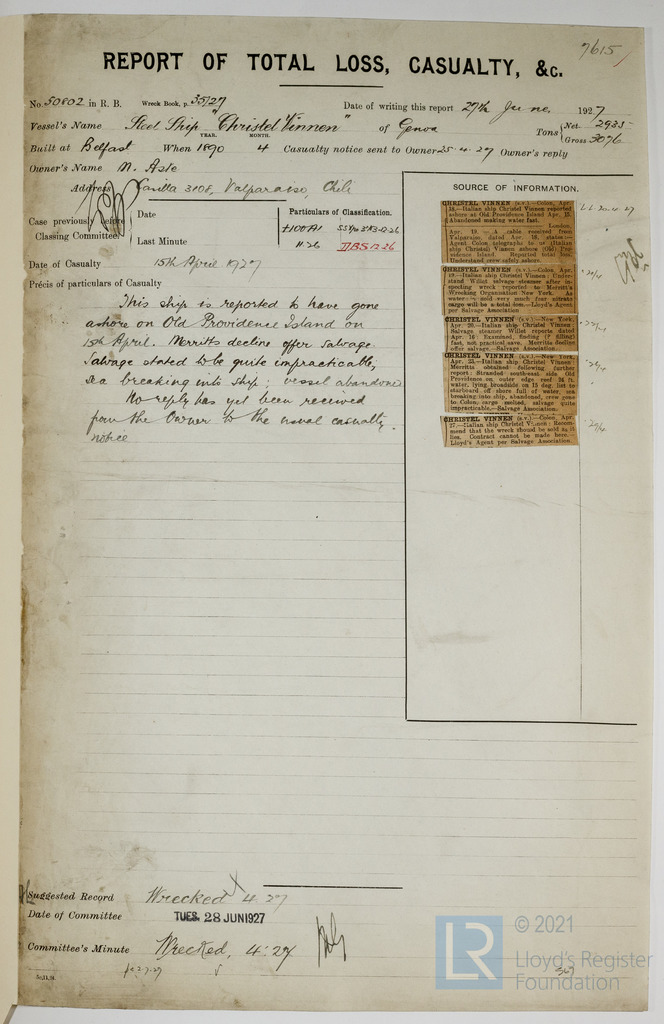 7615
REPORT OF TOTAL LOSS, CASUALTY, &c.
No. 50802 in R. B. Wreck Book, p. 35/27 Date of writing this report 27th June 1927
Vessel's Name Steel Ship "Christel Vinnen" of Genoa Tons { Net 2935
Gross 3076
YEAR. MONTH.
Built at Belfast When 1890 4 Casualty notice sent to Owner 25.4.27 Owner's reply
Owner's Name N. Aste
Address Casilla 3108, Valparaiso, Chili
SOURCE OF INFORMATION.
Case previously before Classing Committee
Date
Last Minute
Particulars of Classification.
+100A1
11.26
DBS 12.26
Date of Casualty 15th April 1927
Précis of particulars of Casualty
This ship is reported to have gone
ashore on Old Providence Island on
15th April. Merritts decline offer salvage.
Salvage stated to be quite impracticable,
sea breaking into ship; vessel abandoned
No reply has yet been received
from the Owner to the usual casualty
notice
CHRISTEL VINNEN (s.v.).—Colon, Apr.
18.—Italian ship Christel Vinnen reported
ashore at Old Providence Island Apr. 15.
Abandoned making water fast.
London,
Apr. 19.—A cable received from
Valparaiso, dated Apr. 18, states:—
Agent Colon telegraphs to us (Italian
ship Christel Vinnen ashore (Old) Providence
Island. Reported total loss.
Understand crew safely ashore.
L.L. 20.4.27
CHRISTEL VINNEN (s.v.).—Colon, Apr.
19.—Italian ship Christel Vinnen: Understand
Willet salvage steamer after inspecting
wreck reported to Merritt's
Wrecking Organisation New York. As
water
cargo will be a total loss.—Lloyd's Agent
per Salvage Association.
CHRISTEL VINNEN (s.v.).—New York,
Apr. 20.—Italian ship Christel Vinnen:
Salvage steamer Willet reports dated
Apr. 16: Examined, finding (? filling)
fast, not practical save. Merritts decline
offer salvage.—Salvage Association.
CHRISTEL VINNEN (s.v.).—New York,
Apr. 23.—Italian ship Christel Vinnen:
Merritts obtained following further
report: Stranded south-east side Old
Providence on outer edge reef 24 ft.
water, lying broadside on 15 deg. list to
starboard off shore full of water, sea
breaking into ship, abandoned, crew gone
to Colon; cargo melted, salvage quite
impracticable.—Salvage Association.
CHRISTEL VINNEN (s.v.).—Colon, Apr.
27.—Italian ship Christel Vinnen: Recommend
that the wreck should be sold as it
lies. Contract cannot be made here.—
Lloyd's Agent per Salvage Association.
Suggested Record Wrecked 4.27
Date of Committee TUES. 28 JUN 1927
Committee's Minute Wrecked, 4.27
LR
© 2021
Lloyd's Register
Foundation